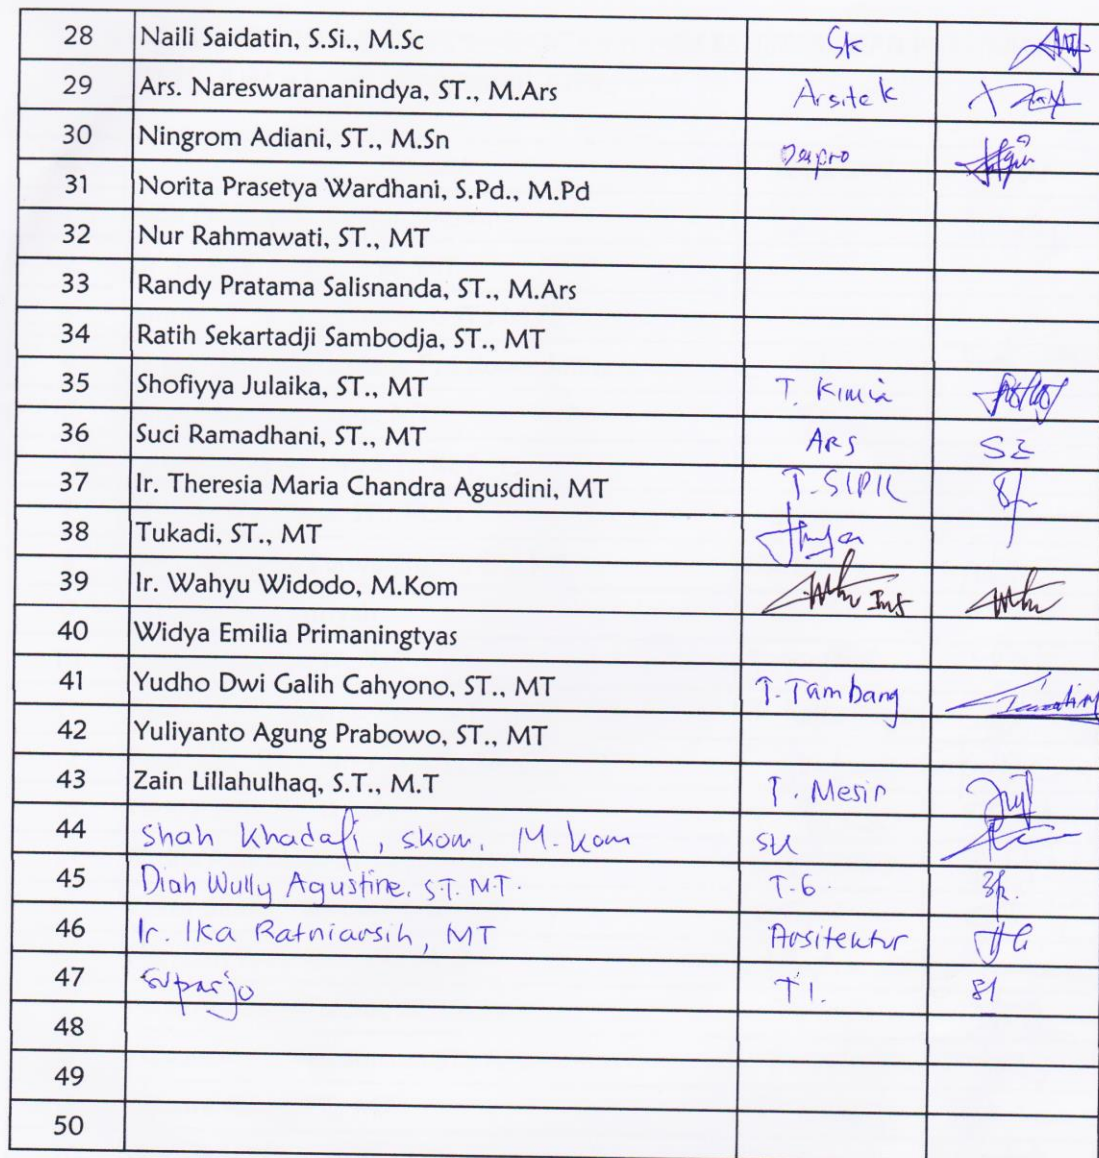 28 Naili Saidatin, S.Si., M.Sc SK
29 Ars. Nareswarananindya, ST., M.Ars Arsitek
30 Ningrom Adiani, ST., M.Sn Despro
31 Norita Prasetya Wardhani, S.Pd., M.Pd
32 Nur Rahmawati, ST., MT
33 Randy Pratama Salisnanda, ST., M.Ars
34 Ratih Sekartadji Sambodja, ST., MT
35 Shofiyya Julaika, ST., MT T. Kimia
36 Suci Ramadhani, ST., MT ARS
37 Ir. Theresia Maria Chandra Agusdini, MT T-SIPIL
38 Tukadi, ST., MT
39 Ir. Wahyu Widodo, M.Kom Inf
40 Widya Emilia Primaningtyas
41 Yudho Dwi Galih Cahyono, ST., MT T. Tambang
42 Yuliyanto Agung Prabowo, ST., MT
43 Zain Lillahulhaq, S.T., M.T T. Mesin
44 Shah Khadafi, S.kom, M.kom SK
45 Diah Wully Agustine, S.T. M.T.
46 Ir. Ika Ratniarsih, MT Arsitektur
47 Suparjo TI.
48
49
50